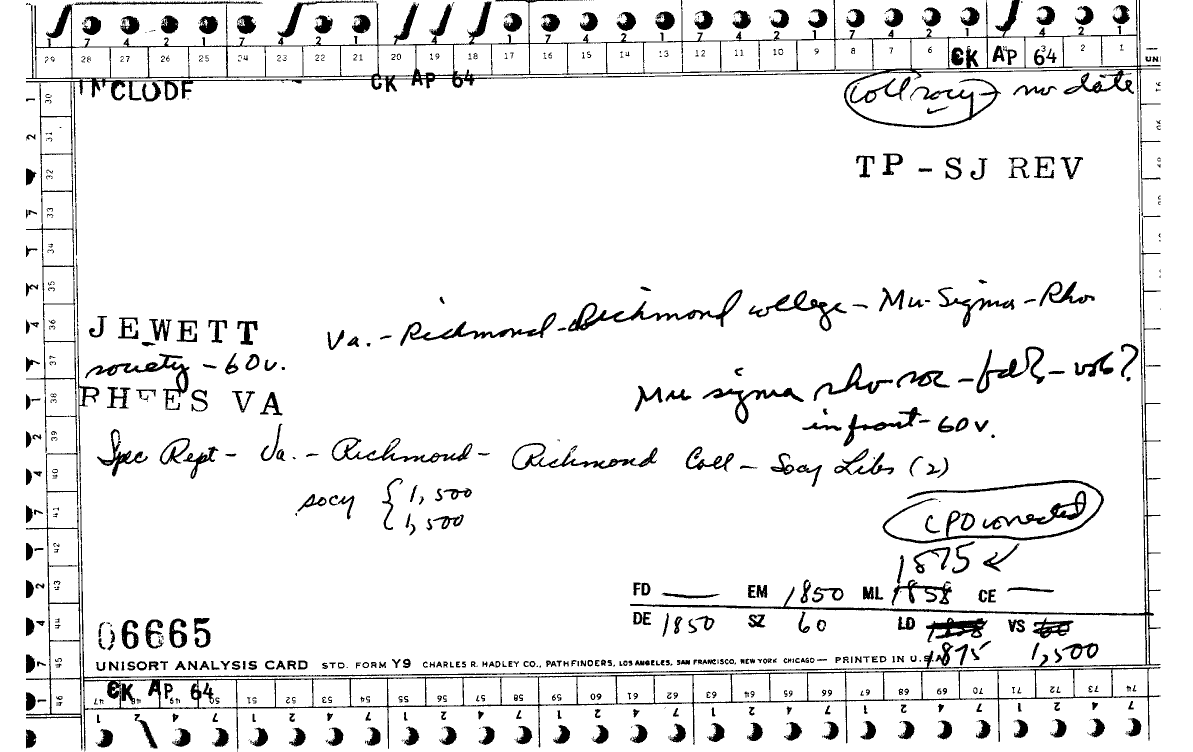 7 4 2 1 7 4 2 1 7 4 2 1 7 4 2 1 7 4 2 1 7 4 2 1 7 4 2 1
29 28 27 26 25 24 23 22 21 20 19 18 17 16 15 14 13 12 11 10 9 8 7 6 CK AP 64 2 1
INCLUDE CK AP 64 Coll socy - no date
TP - SJ REV
JEWETT Va. - Richmond - Richmond College - Mu-Sigma-Rho
society - 60v.
RHEES VA Mu sigma rho soc - fd? - vol6?
in front - 60v.
Spec Rept - Va. - Richmond - Richmond Coll - Socy Libs (2)
socy { 1,500
1,500
CPD corrected
1875
FD — EM 1850 ML 1858 CE —
DE 1850 SZ 60 LD 1858 VS 60
1875 1,500
06665
UNISORT ANALYSIS CARD STD. FORM Y9 CHARLES R. HADLEY CO., PATHFINDERS, LOS ANGELES, SAN FRANCISCO, NEW YORK CHICAGO — PRINTED IN U.S.A.
CK AP 64
47 48 49 50 51 52 53 54 55 56 57 58 59 60 61 62 63 64 65 66 67 68 69 70 71 72 73 74
1 2 4 7 1 2 4 7 1 2 4 7 1 2 4 7 1 2 4 7 1 2 4 7 1 2 4 7